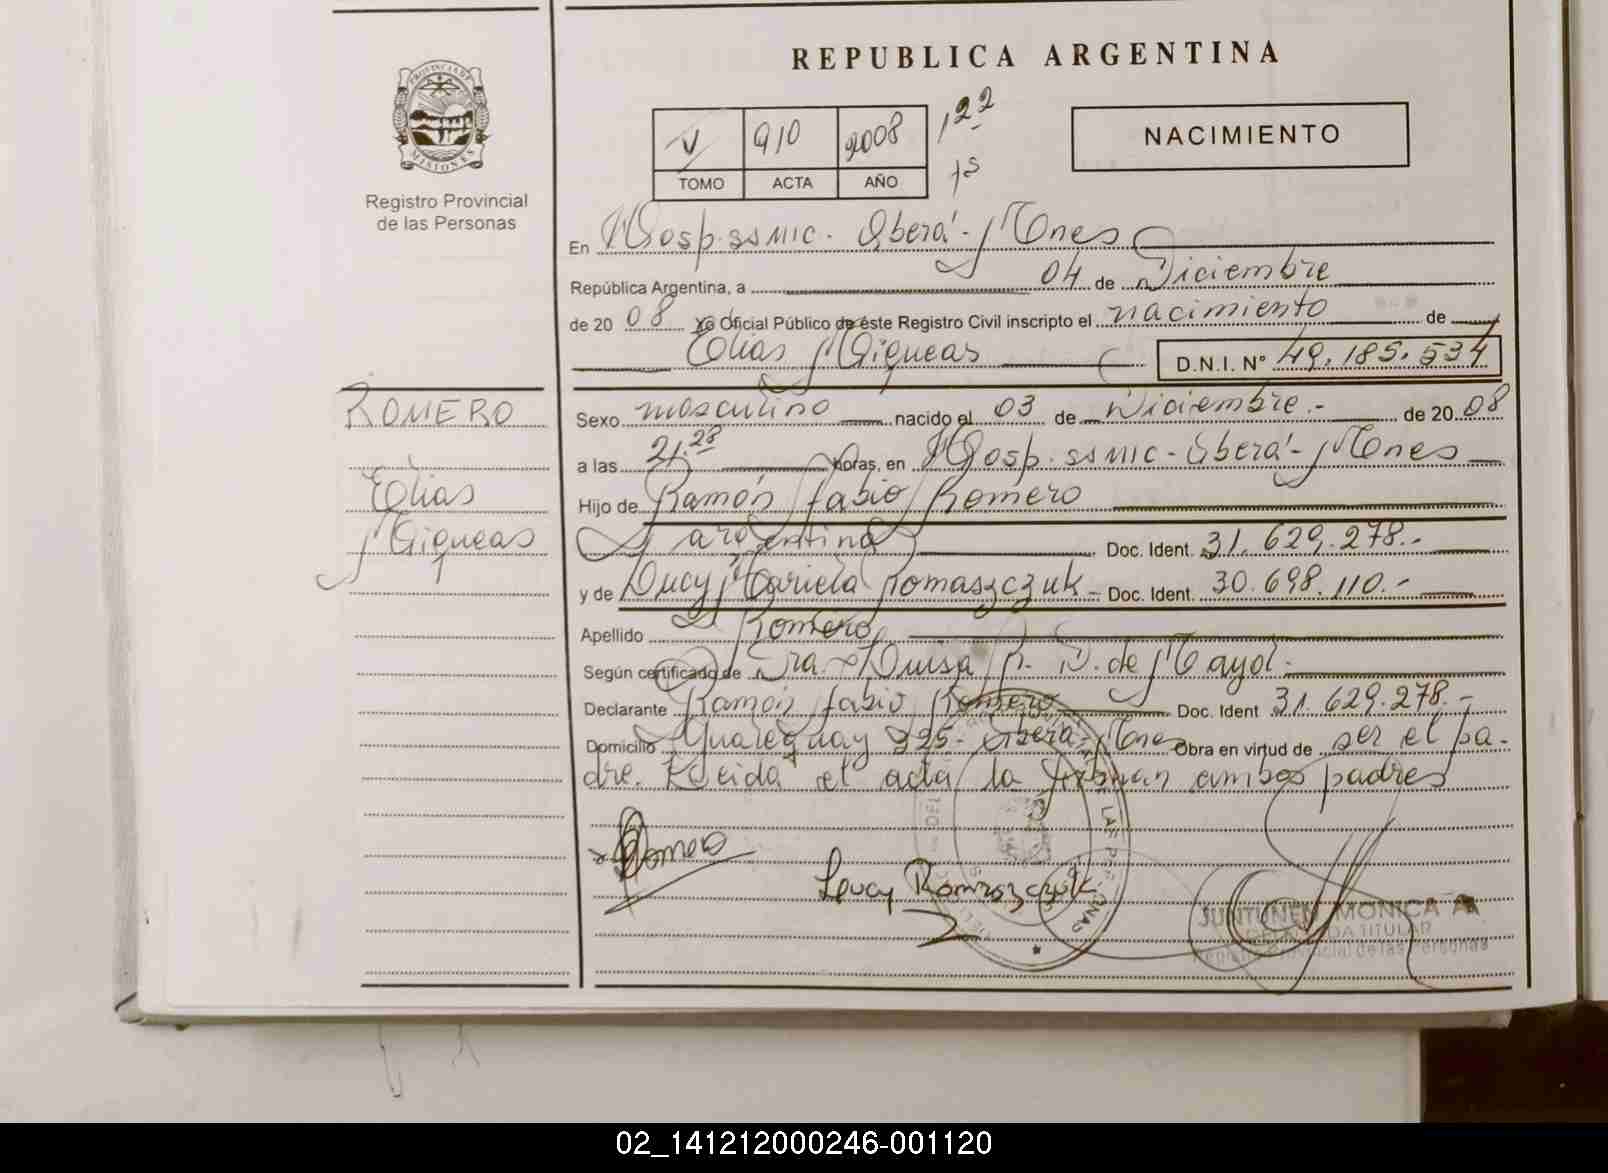 REPUBLICA ARGENTINA
PROVINCIA DE MISIONES
Registro Provincial
de las Personas
V 910 2008 122
TOMO ACTA AÑO
NACIMIENTO
En Hosp. SSMIC - Oberá - Mnes
República Argentina, a 04 de Diciembre
de 20 08 Yo Oficial Público de éste Registro Civil inscripto el nacimiento de
Elias Miqueas D.N.I. Nº 49.185.534
ROMERO
Elias
Miqueas
Sexo masculino nacido el 03 de Diciembre.- de 20 08
a las 21.28 horas, en Hosp. SSMIC - Oberá - Mnes
Hijo de Ramón Fabio Romero
argentina Doc. Ident. 31.629.278.-
y de Lucy Mariela Romaszczuk - Doc. Ident. 30.698.110.-
Apellido Romero
Según certificado de Dra. Luisa P. D. de Mayol.
Declarante Ramón Fabio Romero Doc. Ident 31.629.278.-
Domicilio Gualeguay 225 - Oberá - Mnes Obra en virtud de ser el pa-
dre. Leida el acta la firman ambos padres
Romero
Lucy Romaszczuk
JUNTUNEN MONICA A.
DELEGADA TITULAR
Registro Provincial de las Personas
02_141212000246-001120